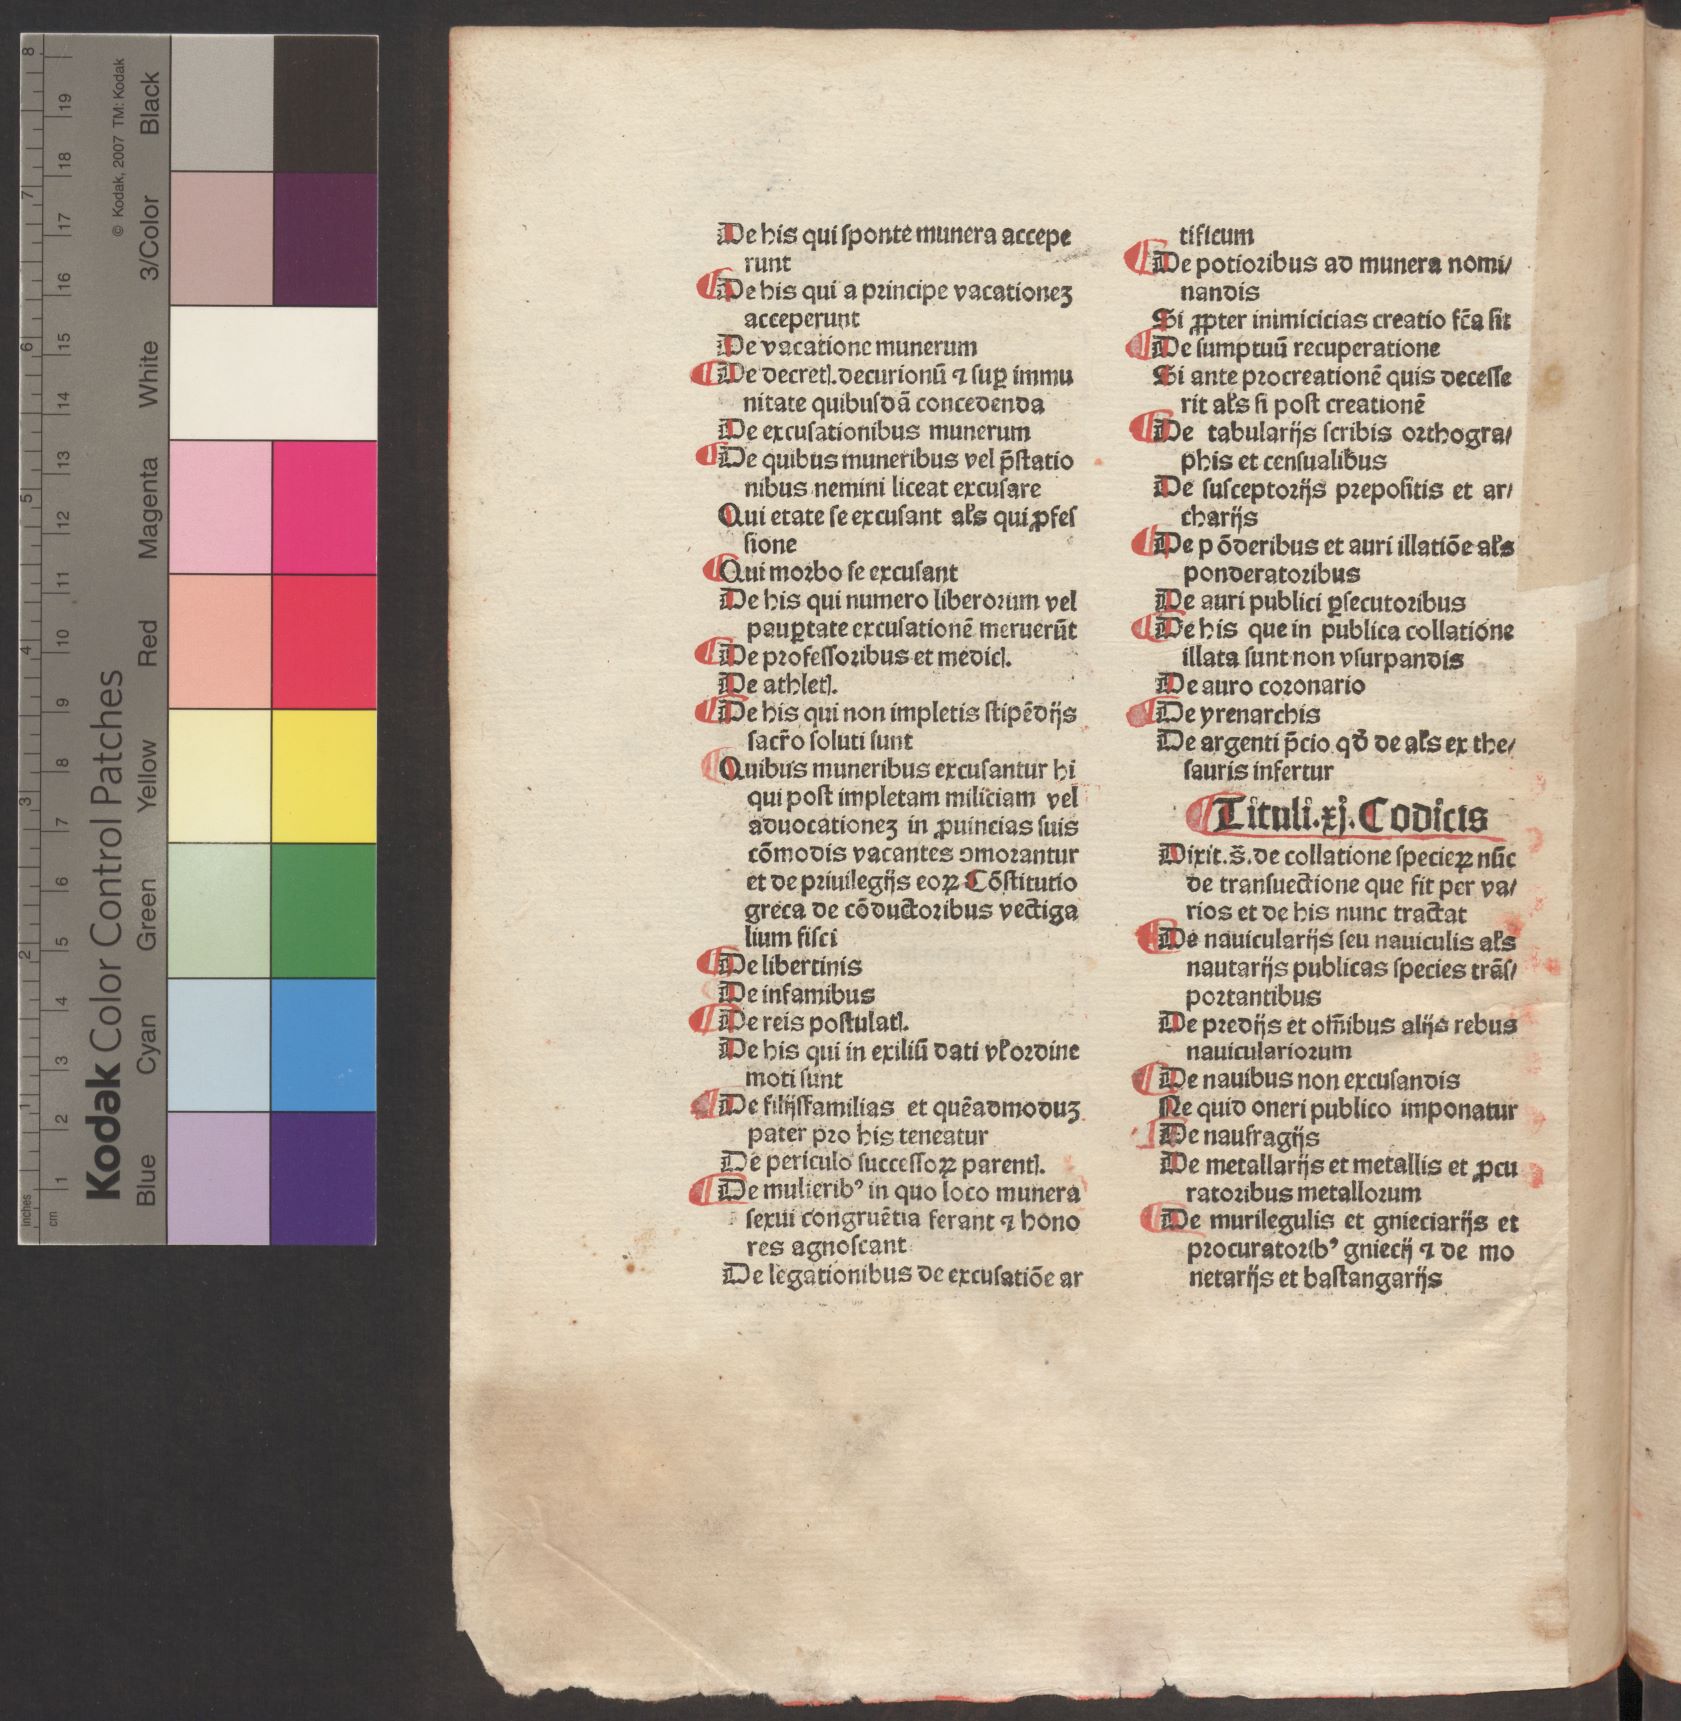 Kodak Color Control Patches
© Kodak, 2007 TM: Kodak
Blue Cyan Green Yellow Red Magenta White 3/Color Black
inches 1 2 3 4 5 6 7 8
cm 1 2 3 4 5 6 7 8 9 10 11 12 13 14 15 16 17 18 19
De his qui ſponte munera accepe
runt
De his qui a principe vacationeʒ
acceperunt
De vacatione munerum
De decretꝭ. decurionū ⁊ ſuꝑ immu
nitate quibuſdā concedenda
De excuſationibus munerum
De quibus muneribus vel p̄ſtatio
nibus nemini liceat excuſare
Qui etate ſe excuſant al̓s qui ꝓfeſ
ſione
Qui morbo ſe excuſant
De his qui numero liberorum vel
pauꝑtate excuſationē meruerūt
De profeſſoribus et medicꝭ.
De athletꝭ.
De his qui non impletis ſtipēdijs
ſacr̄o ſoluti ſunt
Quibus muneribus excuſantur hi
qui poſt impletam miliciam vel
aduocationeʒ in ꝓuincias ſuis
cōmodis vacantes ↄmorantur
et de priuilegijs eoꝝ Cōſtitutio
greca de cōductoribus vectiga
lium fiſci
De libertinis
De infamibus
De reis poſtulatꝭ.
De his qui in exiliū dati vl̓ ordine
moti ſunt
De filijſfamilias et quēadmoduʒ
pater pro his teneatur
De periculo ſucceſſoꝝ parentꝭ.
De mulieribꝰ in quo loco munera
ſexui congruētia ferant ⁊ hono
res agnoſcant
De legationibus de excuſatiōe ar
tificum
De potioribus ad munera nomi/
nandis
Si ꝓpter inimicicias creatio fc̄a ſit
De ſumptuū recuperatione
Si ante procreationē quis deceſſe
rit al̓s ſi poſt creationē
De tabularijs ſcribis orthogra/
phis et cenſualibus
De ſuſceptorijs prepoſitis et ar/
charijs
De p ōderibus et auri illatiōe al̓s
ponderatoribus
De auri publici ꝑſecutoribus
De his que in publica collatione
illata ſunt non vſurpandis
De auro coronario
De yrenarchis
De argenti p̄cio qd̓ de al̓s ex the/
ſauris infertur
Tituli. xj. Codicis
Dixit. s̄. de collatione ſpecieꝝ nūc
de tranſuectione que fit per va/
rios et de his nunc tractat
De nauicularijs ſeu nauiculis al̓s
nautarijs publicas ſpecies trāſ/
portantibus
De predijs et om̄ibus alijs rebus
nauiculariorum
De nauibus non excuſandis
Ne quid oneri publico imponatur
De naufragijs
De metallarijs et metallis et ꝓcu
ratoribus metallorum
De murilegulis et gnieciarijs et
procuratoribꝰ gniecij ⁊ de mo
netarijs et baſtangarijs